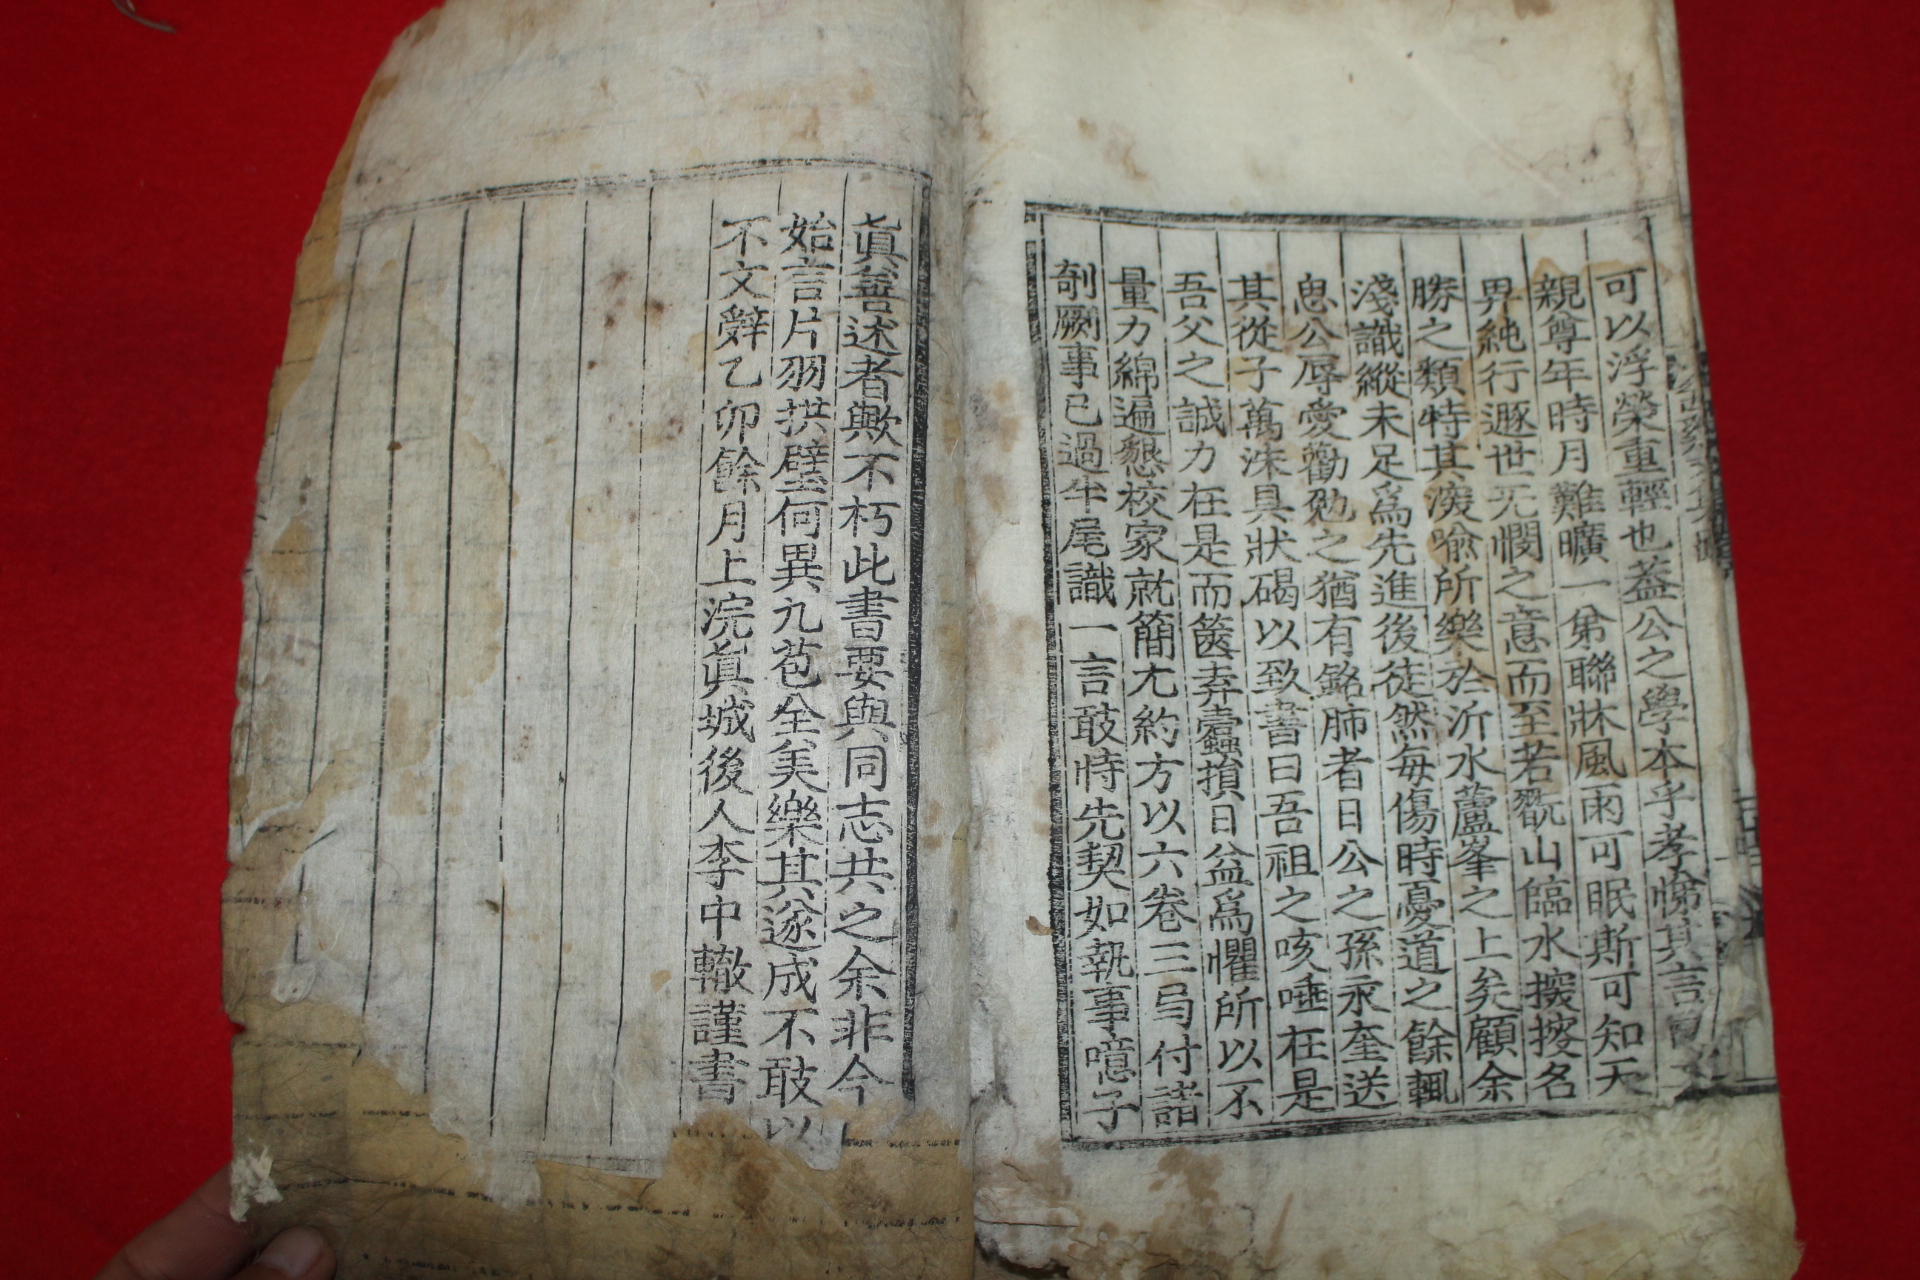 可以浮榮重輕也蓋公之學本乎孝悌其言曰
親尊年時月難曠一第聯牀風雨可眠斯可知天
畀純行遯世无憫之意而至若翫山臨水撰接名
勝之類特其演喩所樂於沂水蘆峯之上矣顧余
淺識縱未足爲先進後徒然每傷時憂道之餘輒
思公辱愛勸勉之猶有銘肺者日公之孫永奎送
其從子萬洙具狀碣以致書曰吾祖之咳唾在是
吾父之誠力在是而篋弆蠹損日益爲懼所以不
量力綿遍懇校家就簡尤約方以六卷三弓付諸
剞劂事已過半尾識一言敢恃先契如執事噫子
眞善述者歟不朽此書要與同志共之余非今
始言片羽拱璧何異九苞全美樂其遂成不敢以
不文辭乙卯餘月上浣眞城後人李中轍謹書